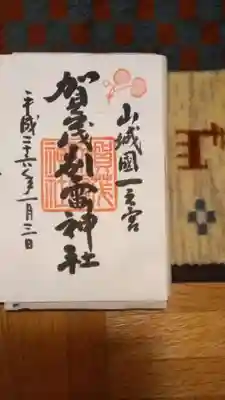 山城國一之宮
賀茂別雷神社
平成二六年一月三日
賀茂
神社